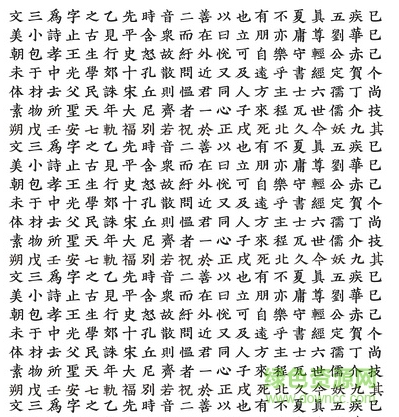 文三爲字之乙先時音二善以也有不夏眞五疾已
美小詩止古見平含衆而在曰立朋亦庸尊劉華巳
朝包孝王生行史怒故紆外悅可自樂守輕公赤己
未于中光學郊十孔散問近又及遠乎書經定賀个
体材去父民誅宋丘則慍君同人方主士六孺丁尚
素物所聖天年大尼齊者一心子來程瓦世儒介技
朔戊壬安七軌福別若祝於正戌死北久今妖九其
文三爲字之乙先時音二善以也有不夏眞五疾已
美小詩止古見平含衆而在曰立朋亦庸尊劉華巳
朝包孝王生行史怒故紆外悅可自樂守輕公赤己
未于中光學郊十孔散問近又及遠乎書經定賀个
体材去父民誅宋丘則慍君同人方主士六孺丁尚
素物所聖天年大尼齊者一心子來程瓦世儒介技
朔戊壬安七軌福別若祝於正戌死北久今妖九其
文三爲字之乙先時音二善以也有不夏眞五疾已
美小詩止古見平含衆而在曰立朋亦庸尊劉華巳
朝包孝王生行史怒故紆外悅可自樂守輕公赤己
未于中光學郊十孔散問近又及遠乎書經定賀个
体材去父民誅宋丘則慍君同人方主士六孺丁尚
素物所聖天年大尼齊者一心子來程瓦世儒介技
朔戊壬安七軌福別若祝於正戌死北久今妖九其
文三爲字之乙先時音二善以也有不夏眞五疾已
绿色资源网
www.downcc.com